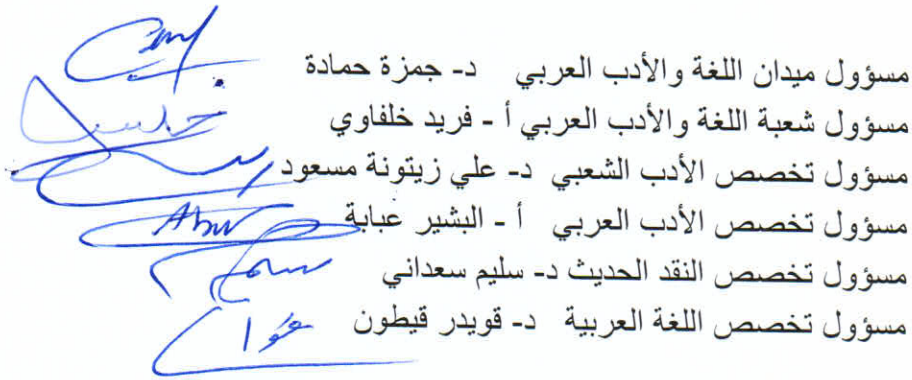 مسؤول ميدان اللغة والأدب العربي د- جمزة حمادة
مسؤول شعبة اللغة والأدب العربي أ - فريد خلفاوي
مسؤول تخصص الأدب الشعبي د- علي زيتونة مسعود
مسؤول تخصص الأدب العربي أ - البشير عبابة
مسؤول تخصص النقد الحديث د- سليم سعداني
مسؤول تخصص اللغة العربية د- قويدر قيطون